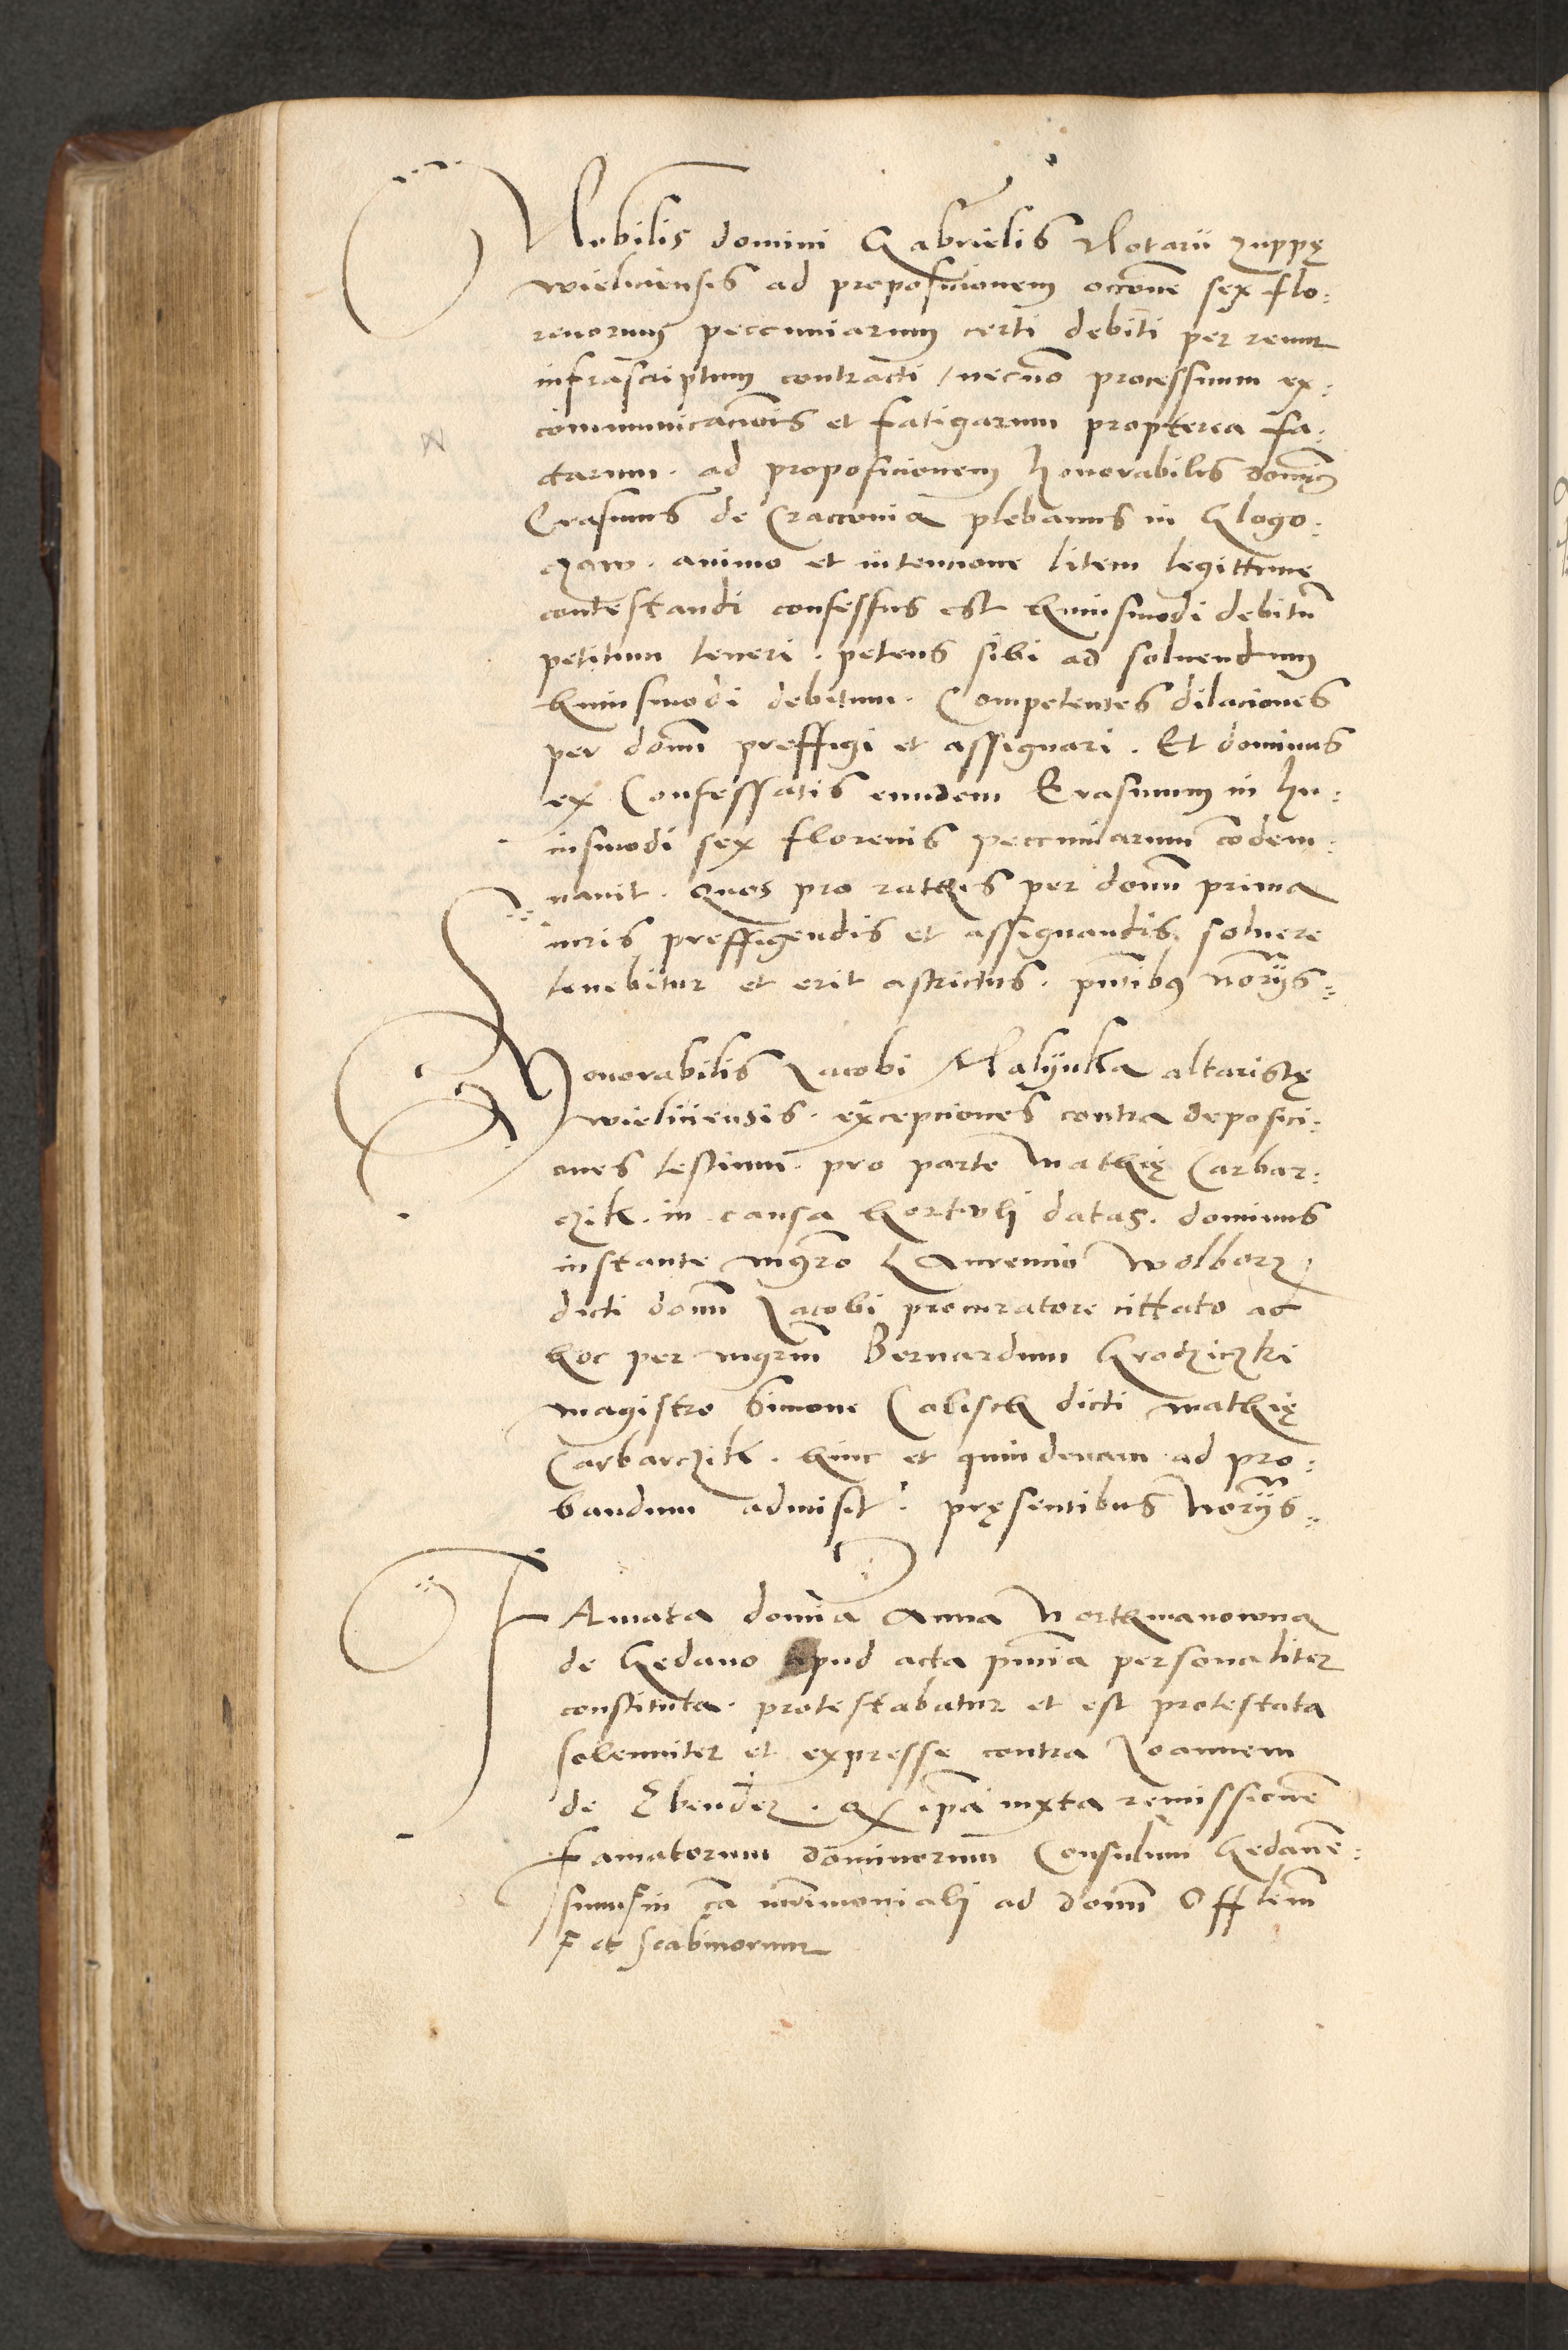 Nobilis domini Gabrielis Notarii zuppę
wieliciensis ad proposicionem occone sex flo:
renorum peccuniarum certi debiti per reum
infrascriptum contracti / necno processuum ex:
communicacnois et fatigarum propterea fa:
ctarum . ad proposicionem honorabilis domis
Erasmus de Craccouia plebanus in Glogo:
czow . animo et intencione litem legittime
contestandi confessus est huiusmodi debitu
petitum teneri . petens sibi ad soluendum
huiusmodi debitum . Competentes dilaciones
per donm preffigi et assignari . Et dominus
ex Confessatis eundem Erasmum in hu:
iusmodi sex florenis peccuniarum codem:
nauit . quos pro rathis per donm prima
iuris preffigendis et assignandis soluere
tenebitur et erit astrictus . pntibus norijs
Honorabilis Jacobi Malynka altaristę
wieliciensis . excepciones contra deposici:
ones testium . pro parte Mathię Carbar:
czik . in causa hortuli datas . dominus
instante mgro Laurencio wolborz
dicti domi Jacobi procuratore cittato ad
hoc per mgrm Bernardum Grodziczki
magistro Simone Calisch dicti Mathię
Carbarczik . hinc et quindenam ad pro:
bandum admisit . pręsentibus norijs
FAmata domia Anna Northmanowna
de Gedano apud acta pntia personaliter
constituta . protestabatur et est protestata
solenniter et expresse contra Joannem
de Ebender . q ipa iuxta remissione
Famatorum dominorum Consulum Gedane:
sium in ca mrimoniali ad donm Offlem
et scabinorum